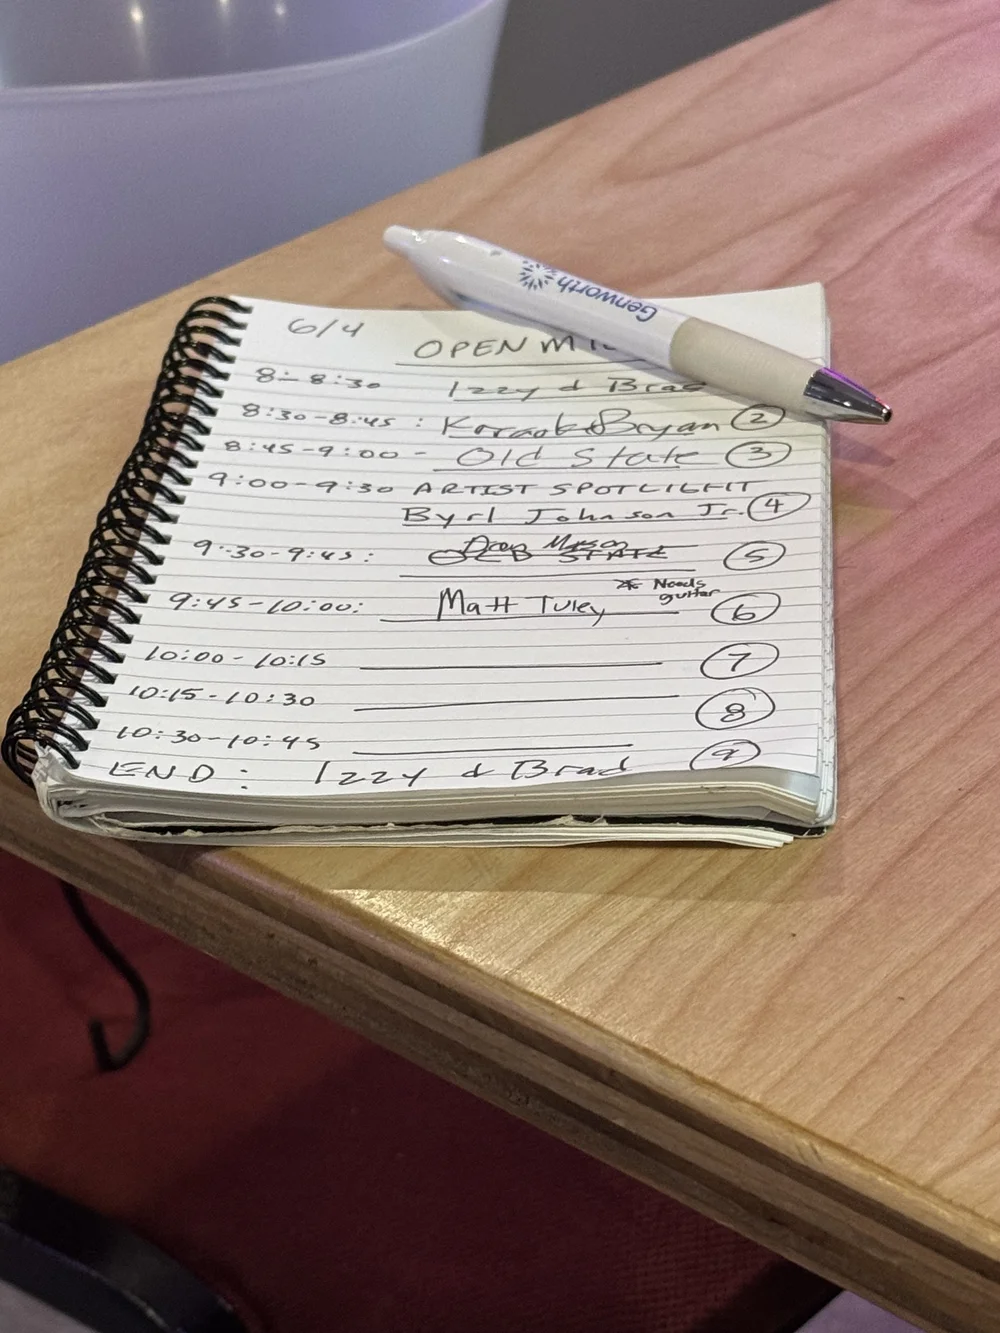 Genworth
6/4
OPEN MI
8:-8:30 Izzy & Brad
8:30-8:45 : & Bryan 2
8:45-9:00 - Old State 3
9:00-9:30 ARTIST SPOTLIGHT
Byrl Johnson Jr. 4
9:30-9:45 : OLD STATE 5
9:45-10:00: Matt Tuley * Needs guitar 6
10:00-10:15 7
10:15-10:30 8
10:30-10:45 9
END: Izzy & Brad